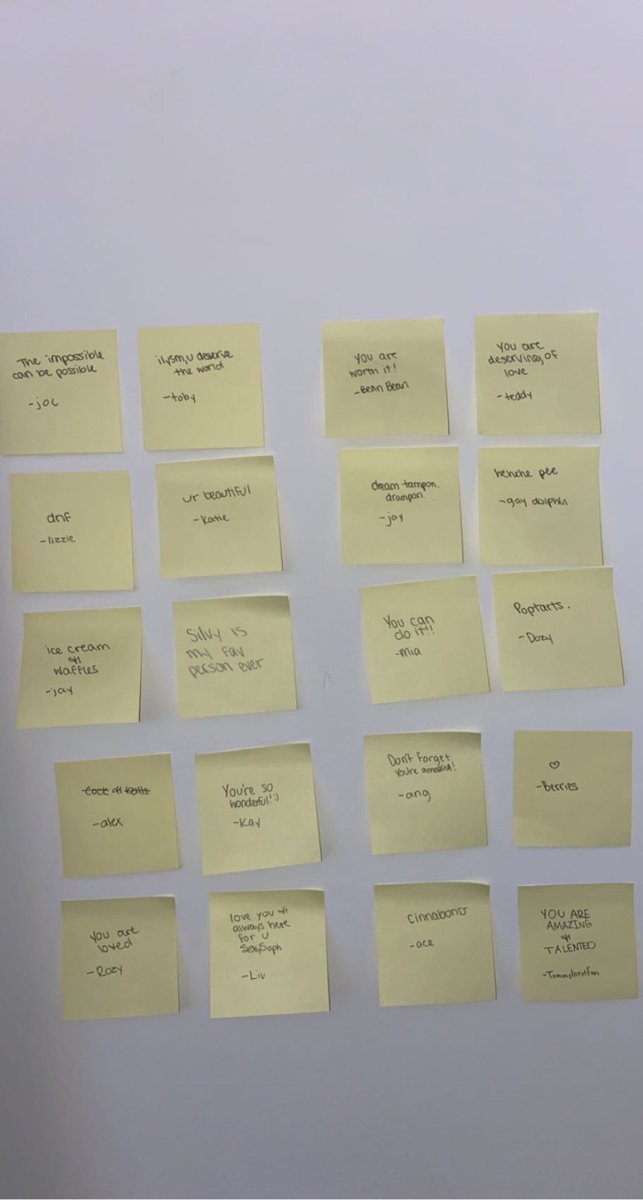 The impossible
can be possible
-joe
ilysm, u deserve
the world
-toby
You are
worth it!
-Bean Bean
You are
deserving of
love
-teddy
dnf
-lizzie
ur beautiful
-Katie
dream tampon.
drampon.
-jay
hehehe pee
-gay dolphin
ice cream
&
waffles
-jay
Silvy is
my fav
person ever
You can
do it!!
-mia
Poptarts.
-Dozy
-alex
You're so
wonderful! :)
-Kay
Don't forget
you're amazing!
-ang
♡
-Berries
You are
loved
-Rozy
love you &
always here
for u
-Liv
cinnabones
-ace
YOU ARE
AMAZING
&
TALENTED
-Tommyinnitfan